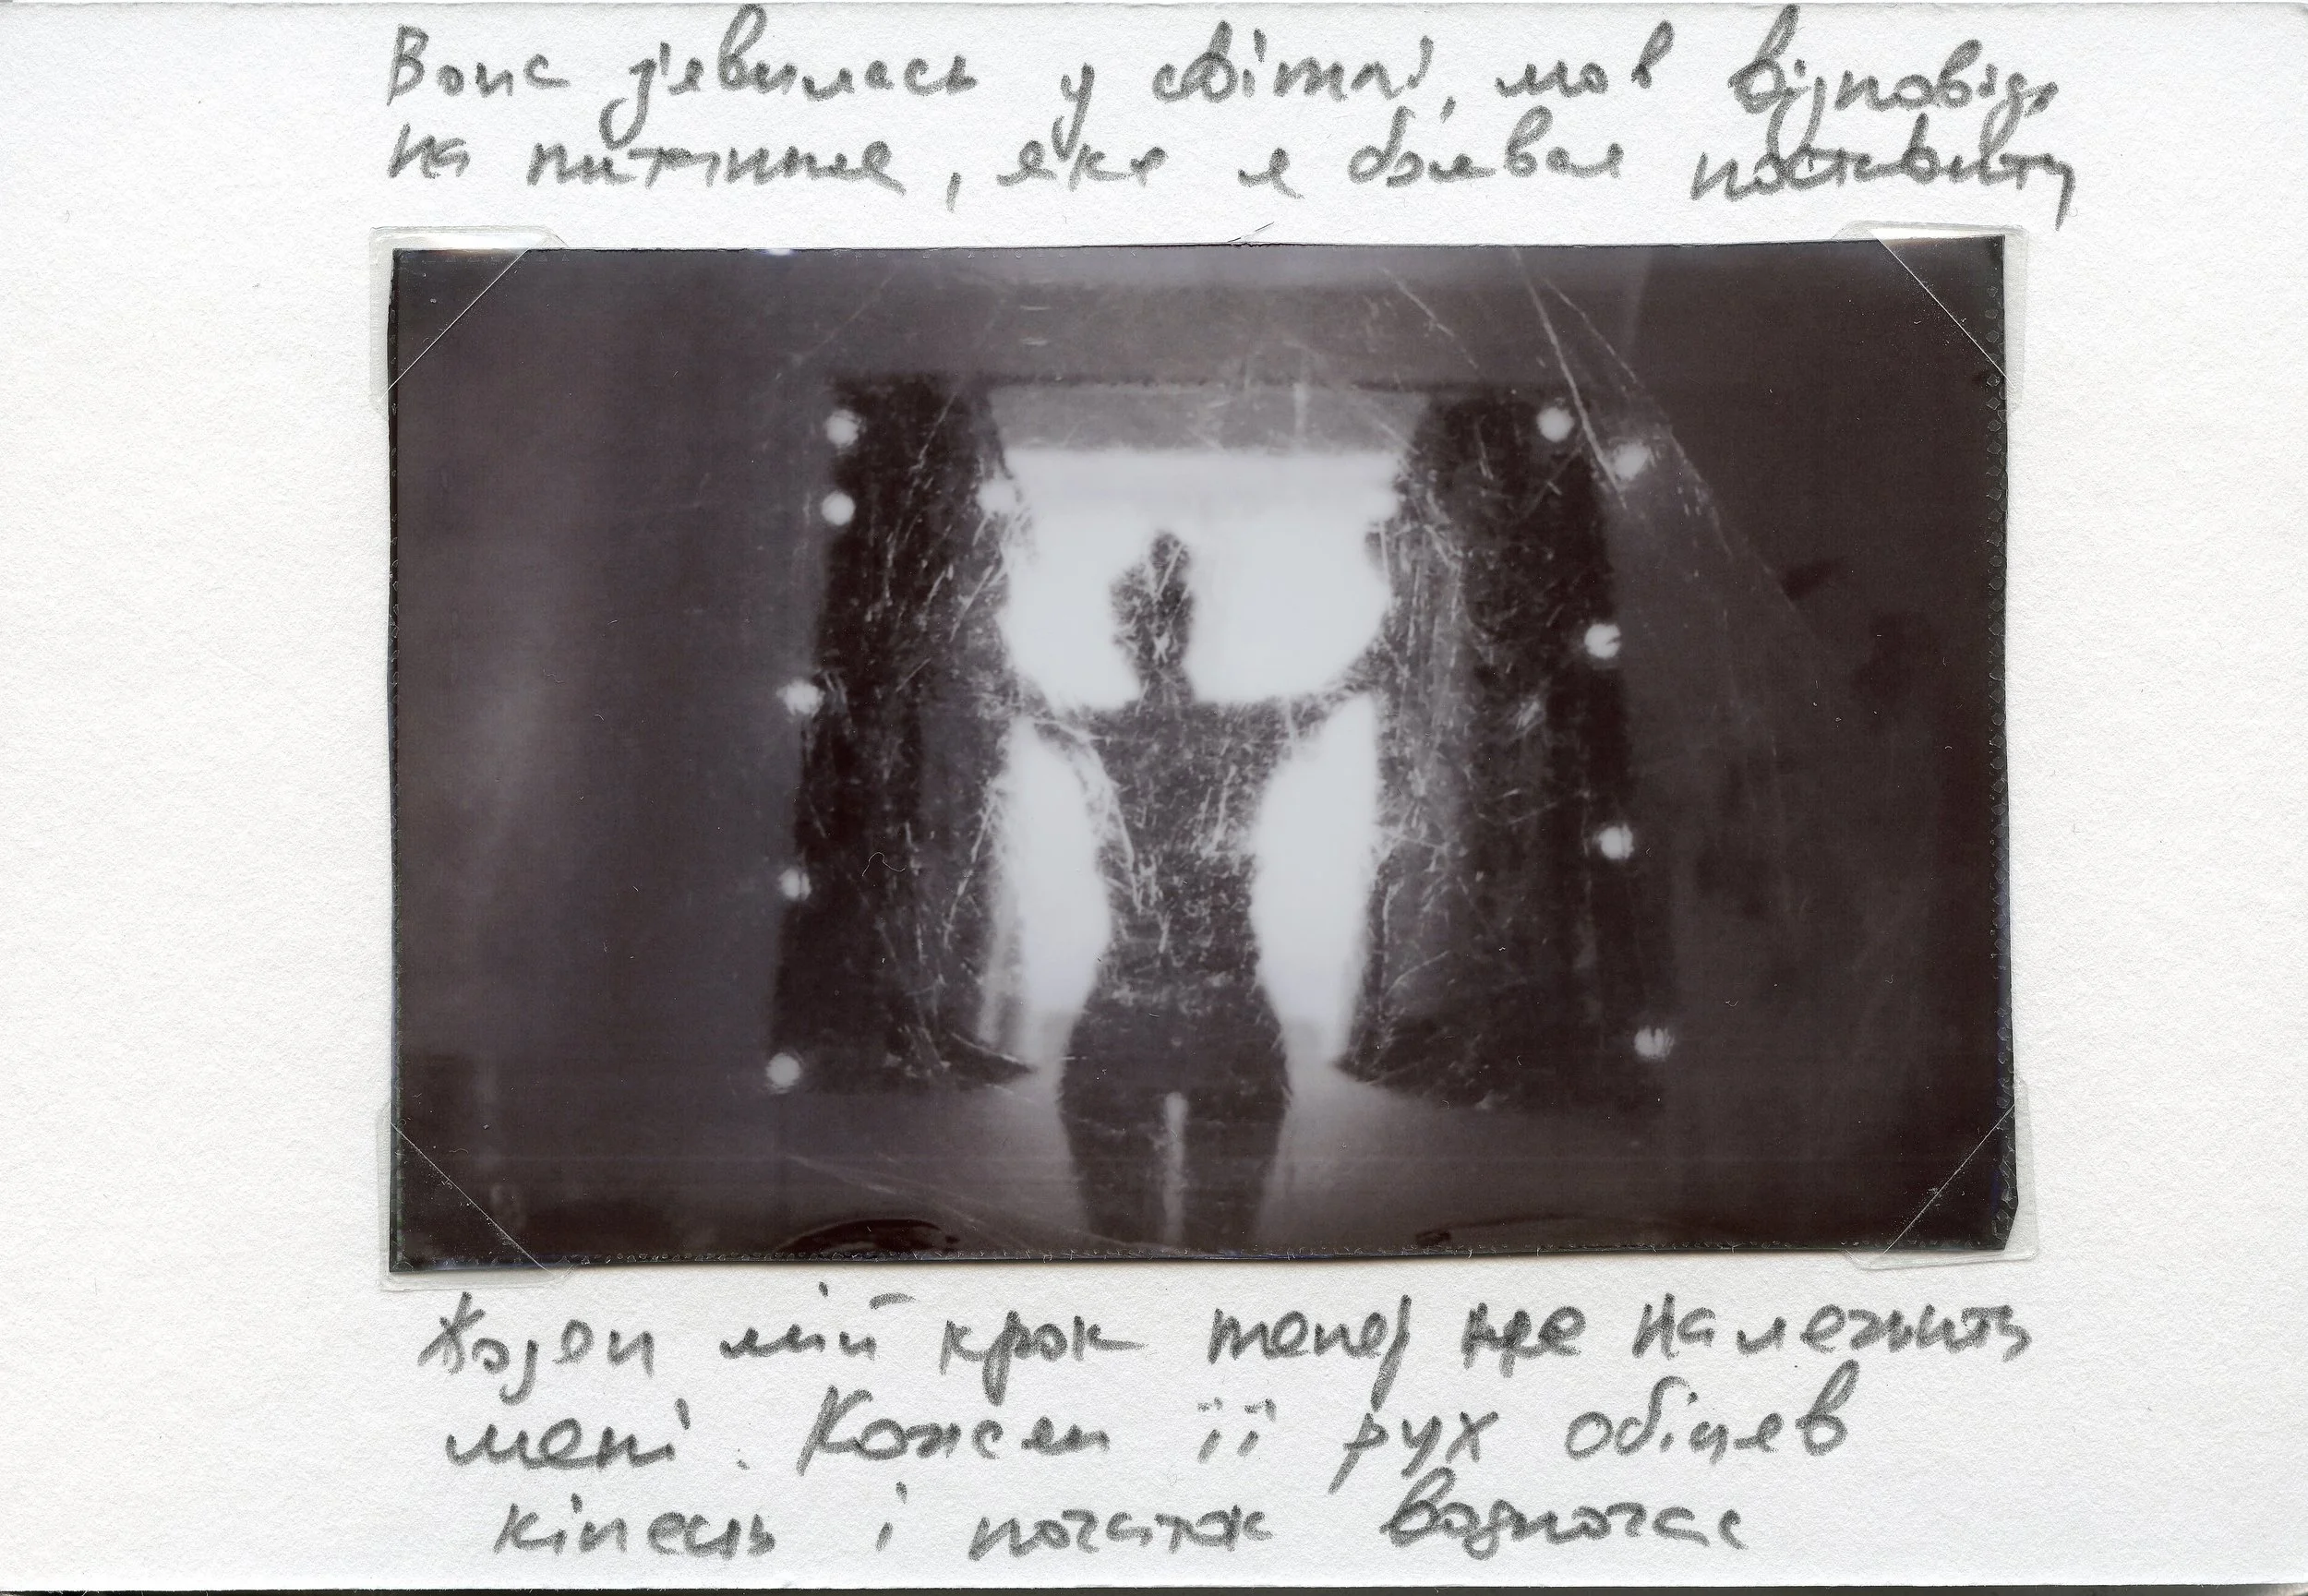 Вона з'явилась у світлі, мов відповідь
на питання, яке я боявся поставити
Жоден мій крок тепер не належить
мені. Кожен її рух обіцяв
кінець і початок водночас